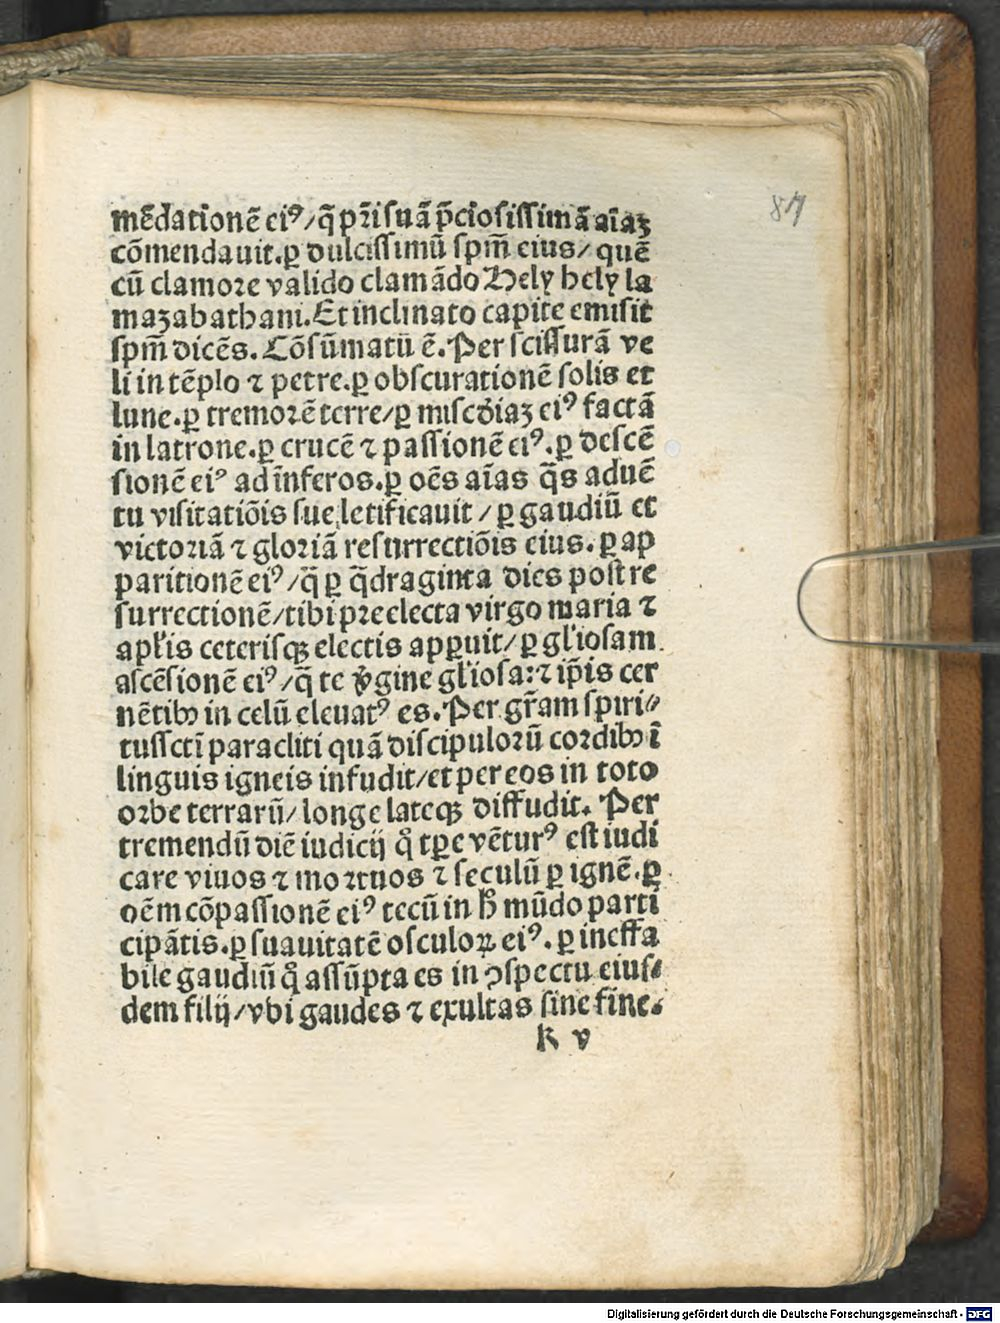 87
mẽdationẽ eiꝰ/q̃ pr̃i suã p̃ciosissimã aĩaꝫ
cõmendauit.ꝑ dulcissimũ spm̃ eius/ quẽ
cũ clamoꝛe valido clamãdo Hely hely la
mazabathani. Et inclinato capite emisit
spm̃ dicẽs. Cõsũmatũ ẽ. Per scissurã ve
li in tẽplo ⁊ petre.ꝑ obscurationẽ solis et
lune.ꝑ tremoꝛẽ terre/ꝑ misc̃diaꝫ eiꝰ factã
in latrone.ꝑ crucẽ ⁊ passionẽ eiꝰ.ꝑ descẽ
sionẽ eiꝰ ad ĩnferos.ꝑ oẽs aĩas q̃s aduẽ
tu visitatiõis sue letificauit/ ꝑ gaudiũ et
victoꝛiã ⁊ gloꝛiã resurrectiõis eius.ꝑ ap
paritionẽ eiꝰ/q̃ ꝑ q̃draginta dies post re
surrectionẽ/tibi pꝛeelecta virgo maria ⁊
apl̃is ceterisqꝫ electis apꝑuit/ ꝑ gl̃iosam
ascẽsionẽ eiꝰ/q̃ te ꝟgine gl̃iosa:⁊ ip̃is cer
nẽtibꝰ in celũ eleuatꝰ es. Per gr̃am spiri⸗
tussctĩ paracliti quã discipuloꝛũ coꝛdibꝰ ĩ
linguis igneis infudit/et per eos in toto
oꝛbe terrarũ/ longe lateqꝫ diffudit. Per
tremendũ diẽ iudicij q̊ tꝑe vẽturꝰ est iudi
care viuos ⁊ moꝛtuos ⁊ seculũ ꝑ ignẽ.ꝑ
oẽm cõpassionẽ eiꝰ tecũ in h̊ mũdo parti
cipãtis.ꝑ suauitatẽ osculoꝝ eiꝰ. ꝑ ineffa
bile gaudiũ q̊ assũpta es in ꝯspectu eius⸗
dem filij/vbi gaudes ⁊ exultas sine fine.
k v
Digitalisierung gefördert durch die Deutsche Forschungsgemeinschaft - DFG